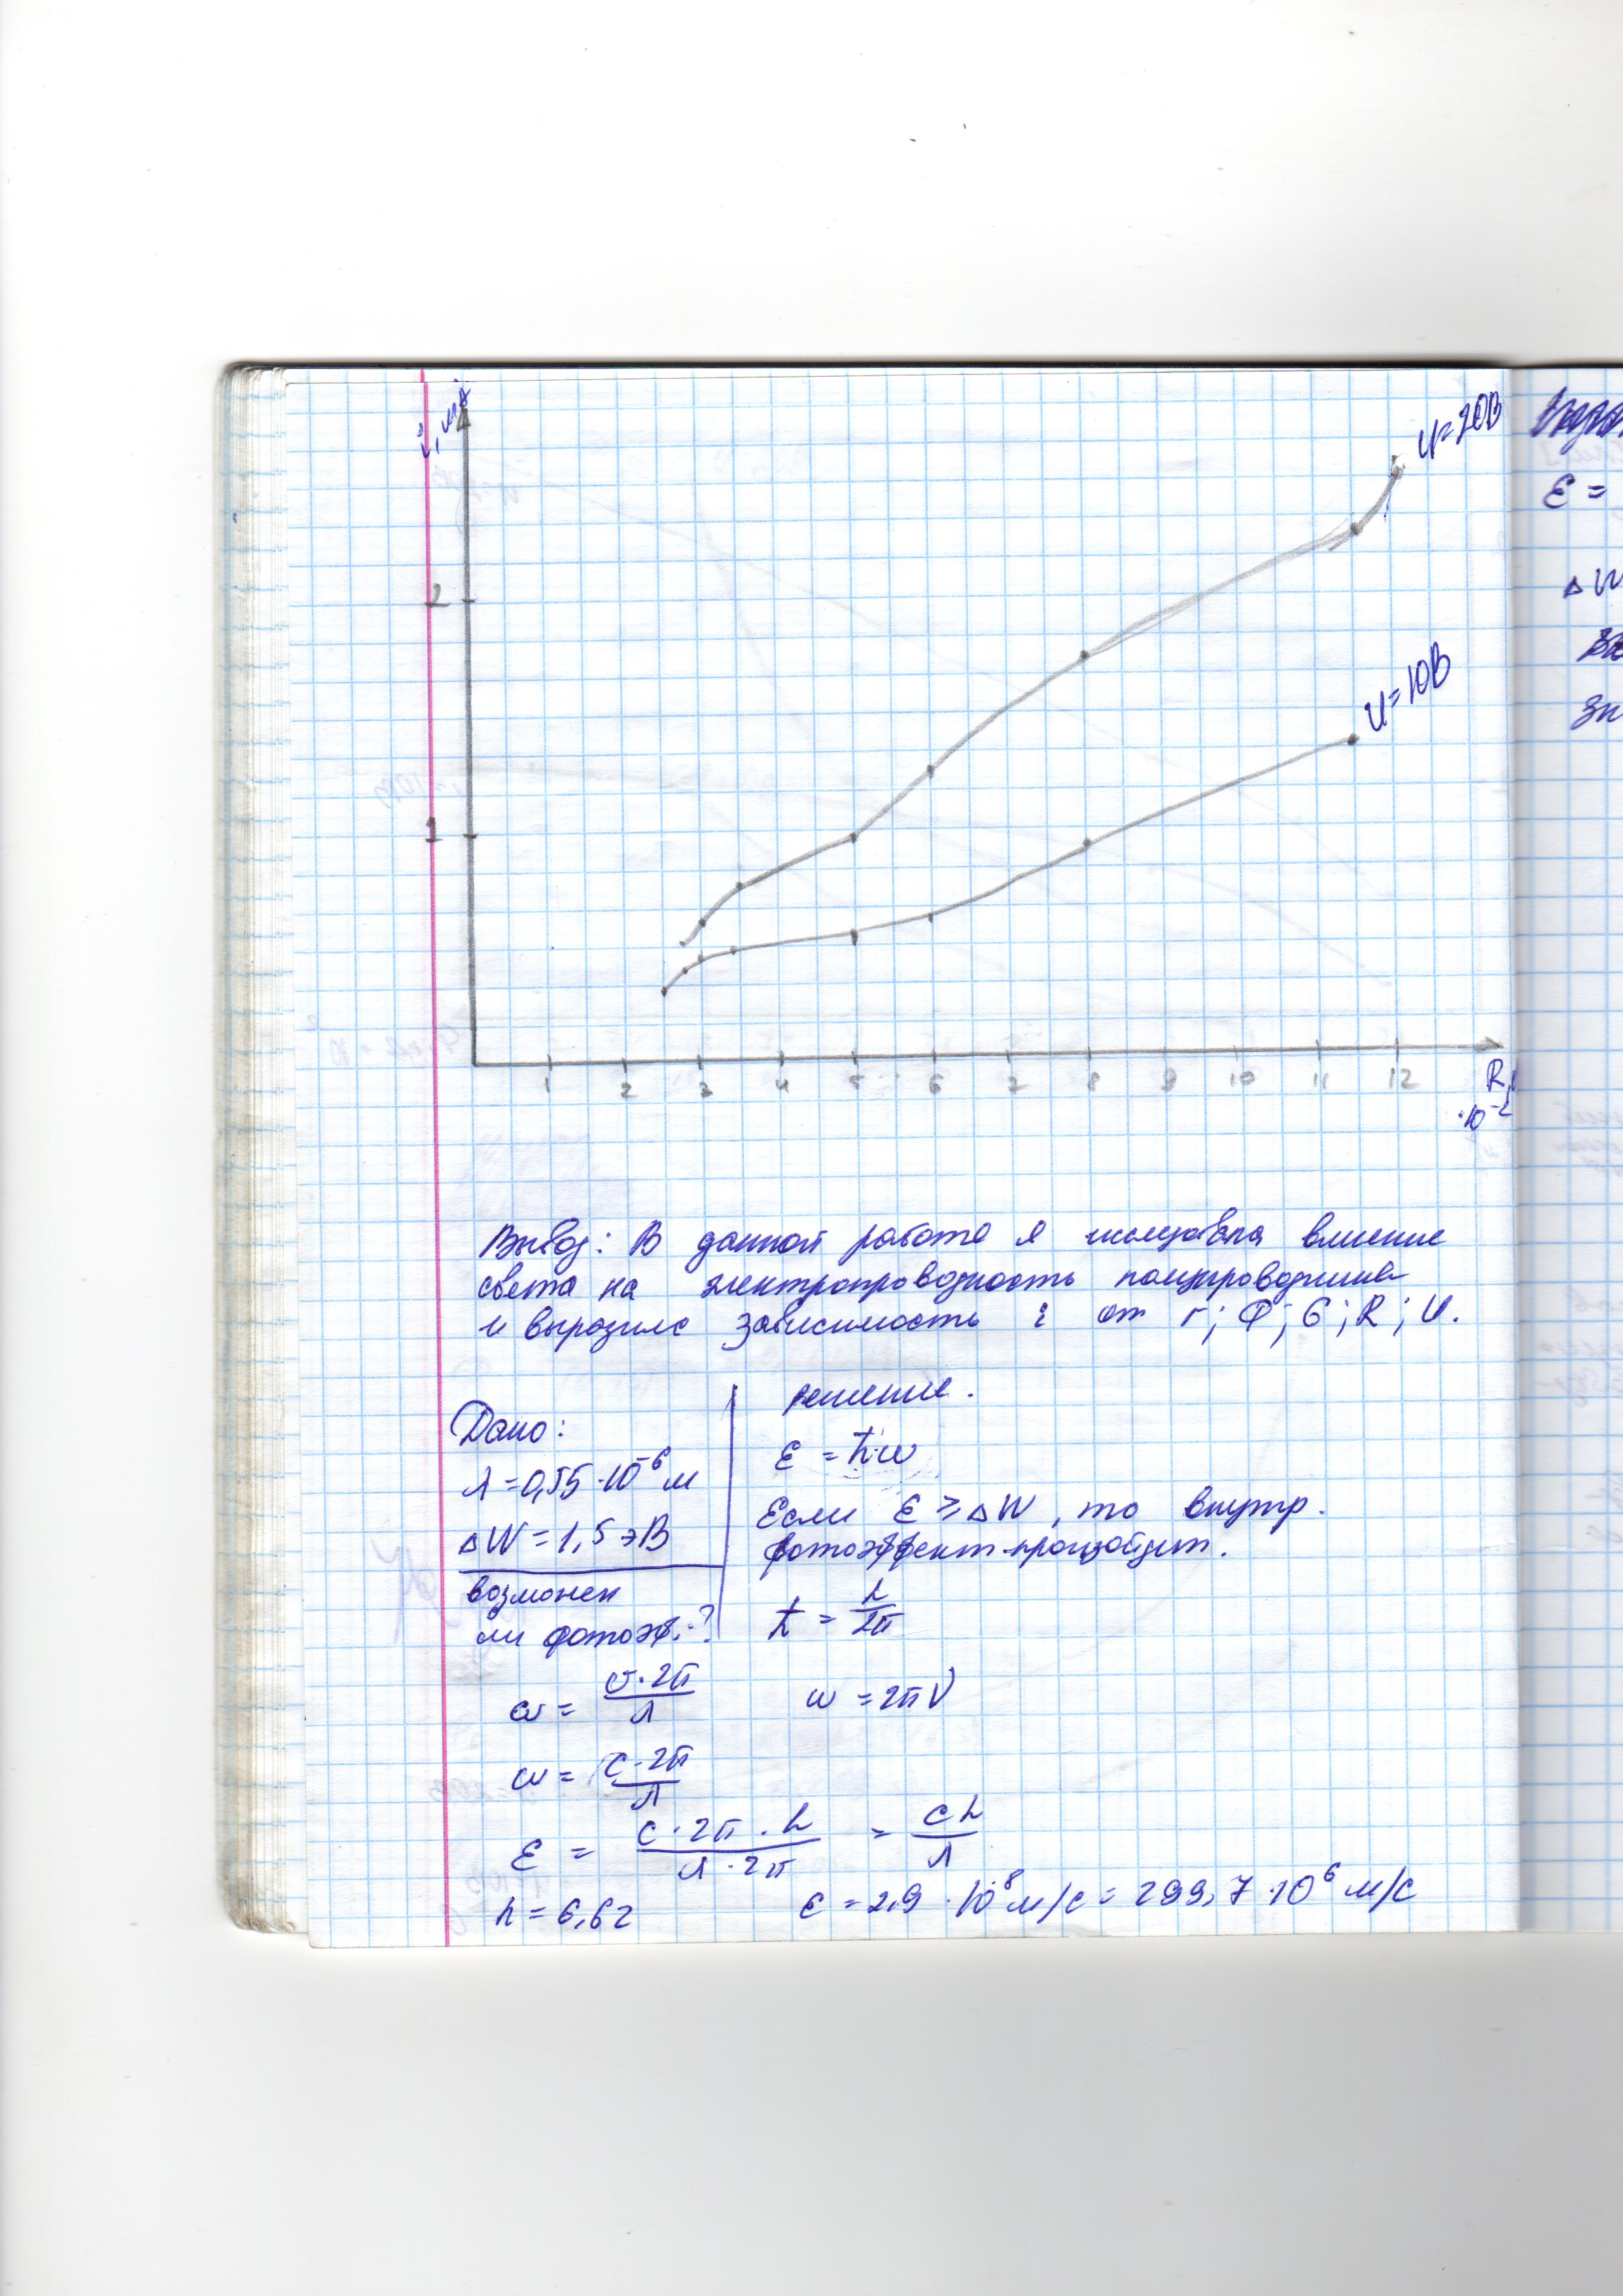 i, мА
U=20В
2
U=10В
1
1 2 3 4 5 6 7 8 9 10 11 12
R,
·10⁻²
Вывод: В данной работе я исследовала влияние
света на электропроводность полупроводника
и выразила зависимость i от r; Ф; G; R; U.
Дано:
λ=0,55·10⁻⁶м
ΔW=1,5эВ
возможен
ли фотоэф.-?
решение.
ε = ħ·ω
Если ε ≥ ΔW, то внутр.
фотоэффект произойдет.
ħ = h/2π
ω = υ·2π/λ
ω = 2πν
ω = c·2π/λ
ε = c·2π·h/λ·2π = ch/λ
h = 6,62
c = 2,9·10⁸м/с = 299,7·10⁶ м/с
ε =
ΔW